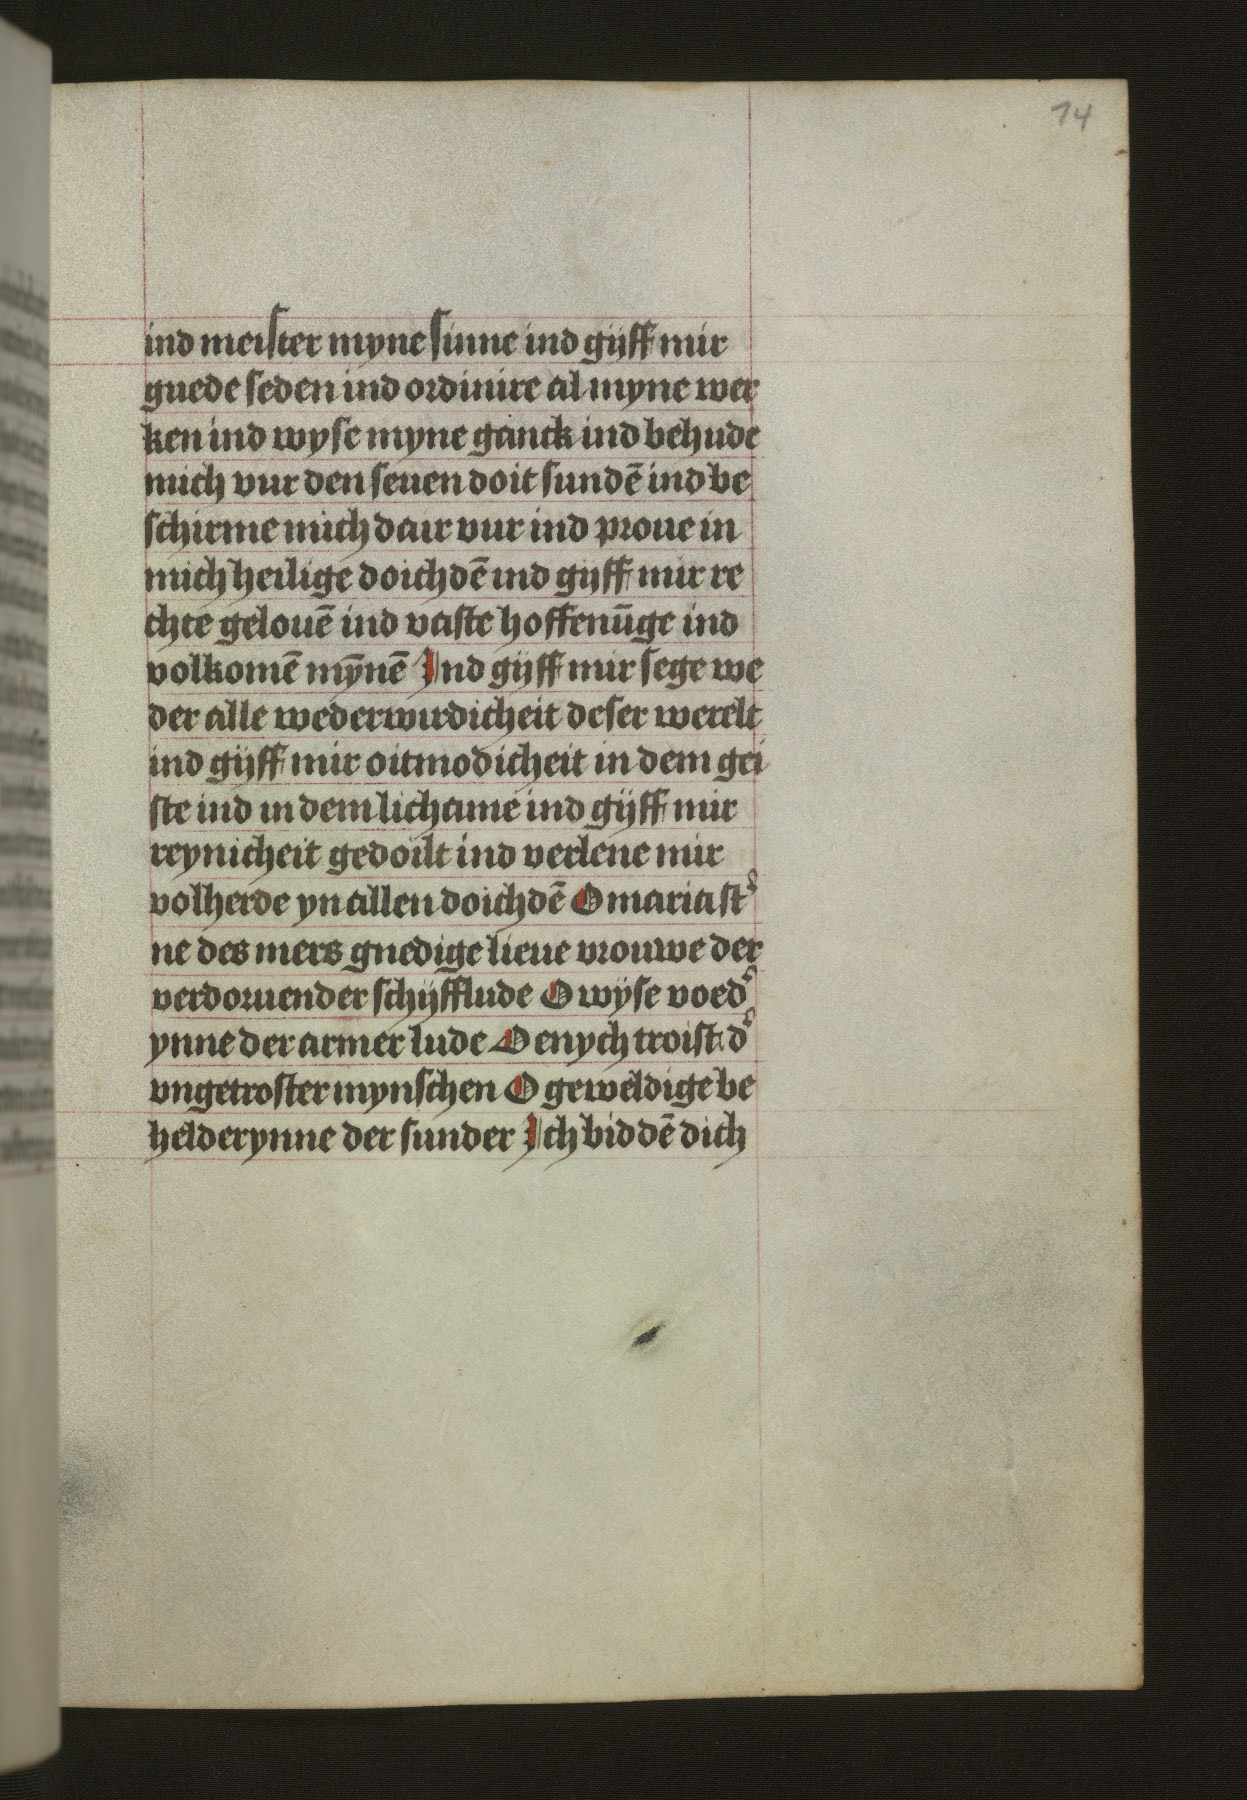 74
ind meister myne sinne ind gijff mir
guede seden ind ordinire al myne wer
ken ind wyse myne ganck ind behude
mich vur den seuen doit sundē ind be
schirme mich dair vur ind proue in
mich heilige doichdē ind gijff mir re
chte gelouē ind vaste hoffenūge ind
volkomē mȳnē Ind gijff mir sege we
der alle wederwirdicheit deser werelt
ind gijff mir oitmodicheit in dem gei
ste ind in dem lichame ind gijff mir
reynicheit gedoilt ind verlene mir
volherde yn allen doichdē O maria st᾽
ne des mers gnedige lieue vrouwe der
verdoruender schijfflude O wijse voed᾽
ynne der armer lude O enych troist d᾽
vngetroster mynschen O geweldige be
helderynne der sunder Ich biddē dich